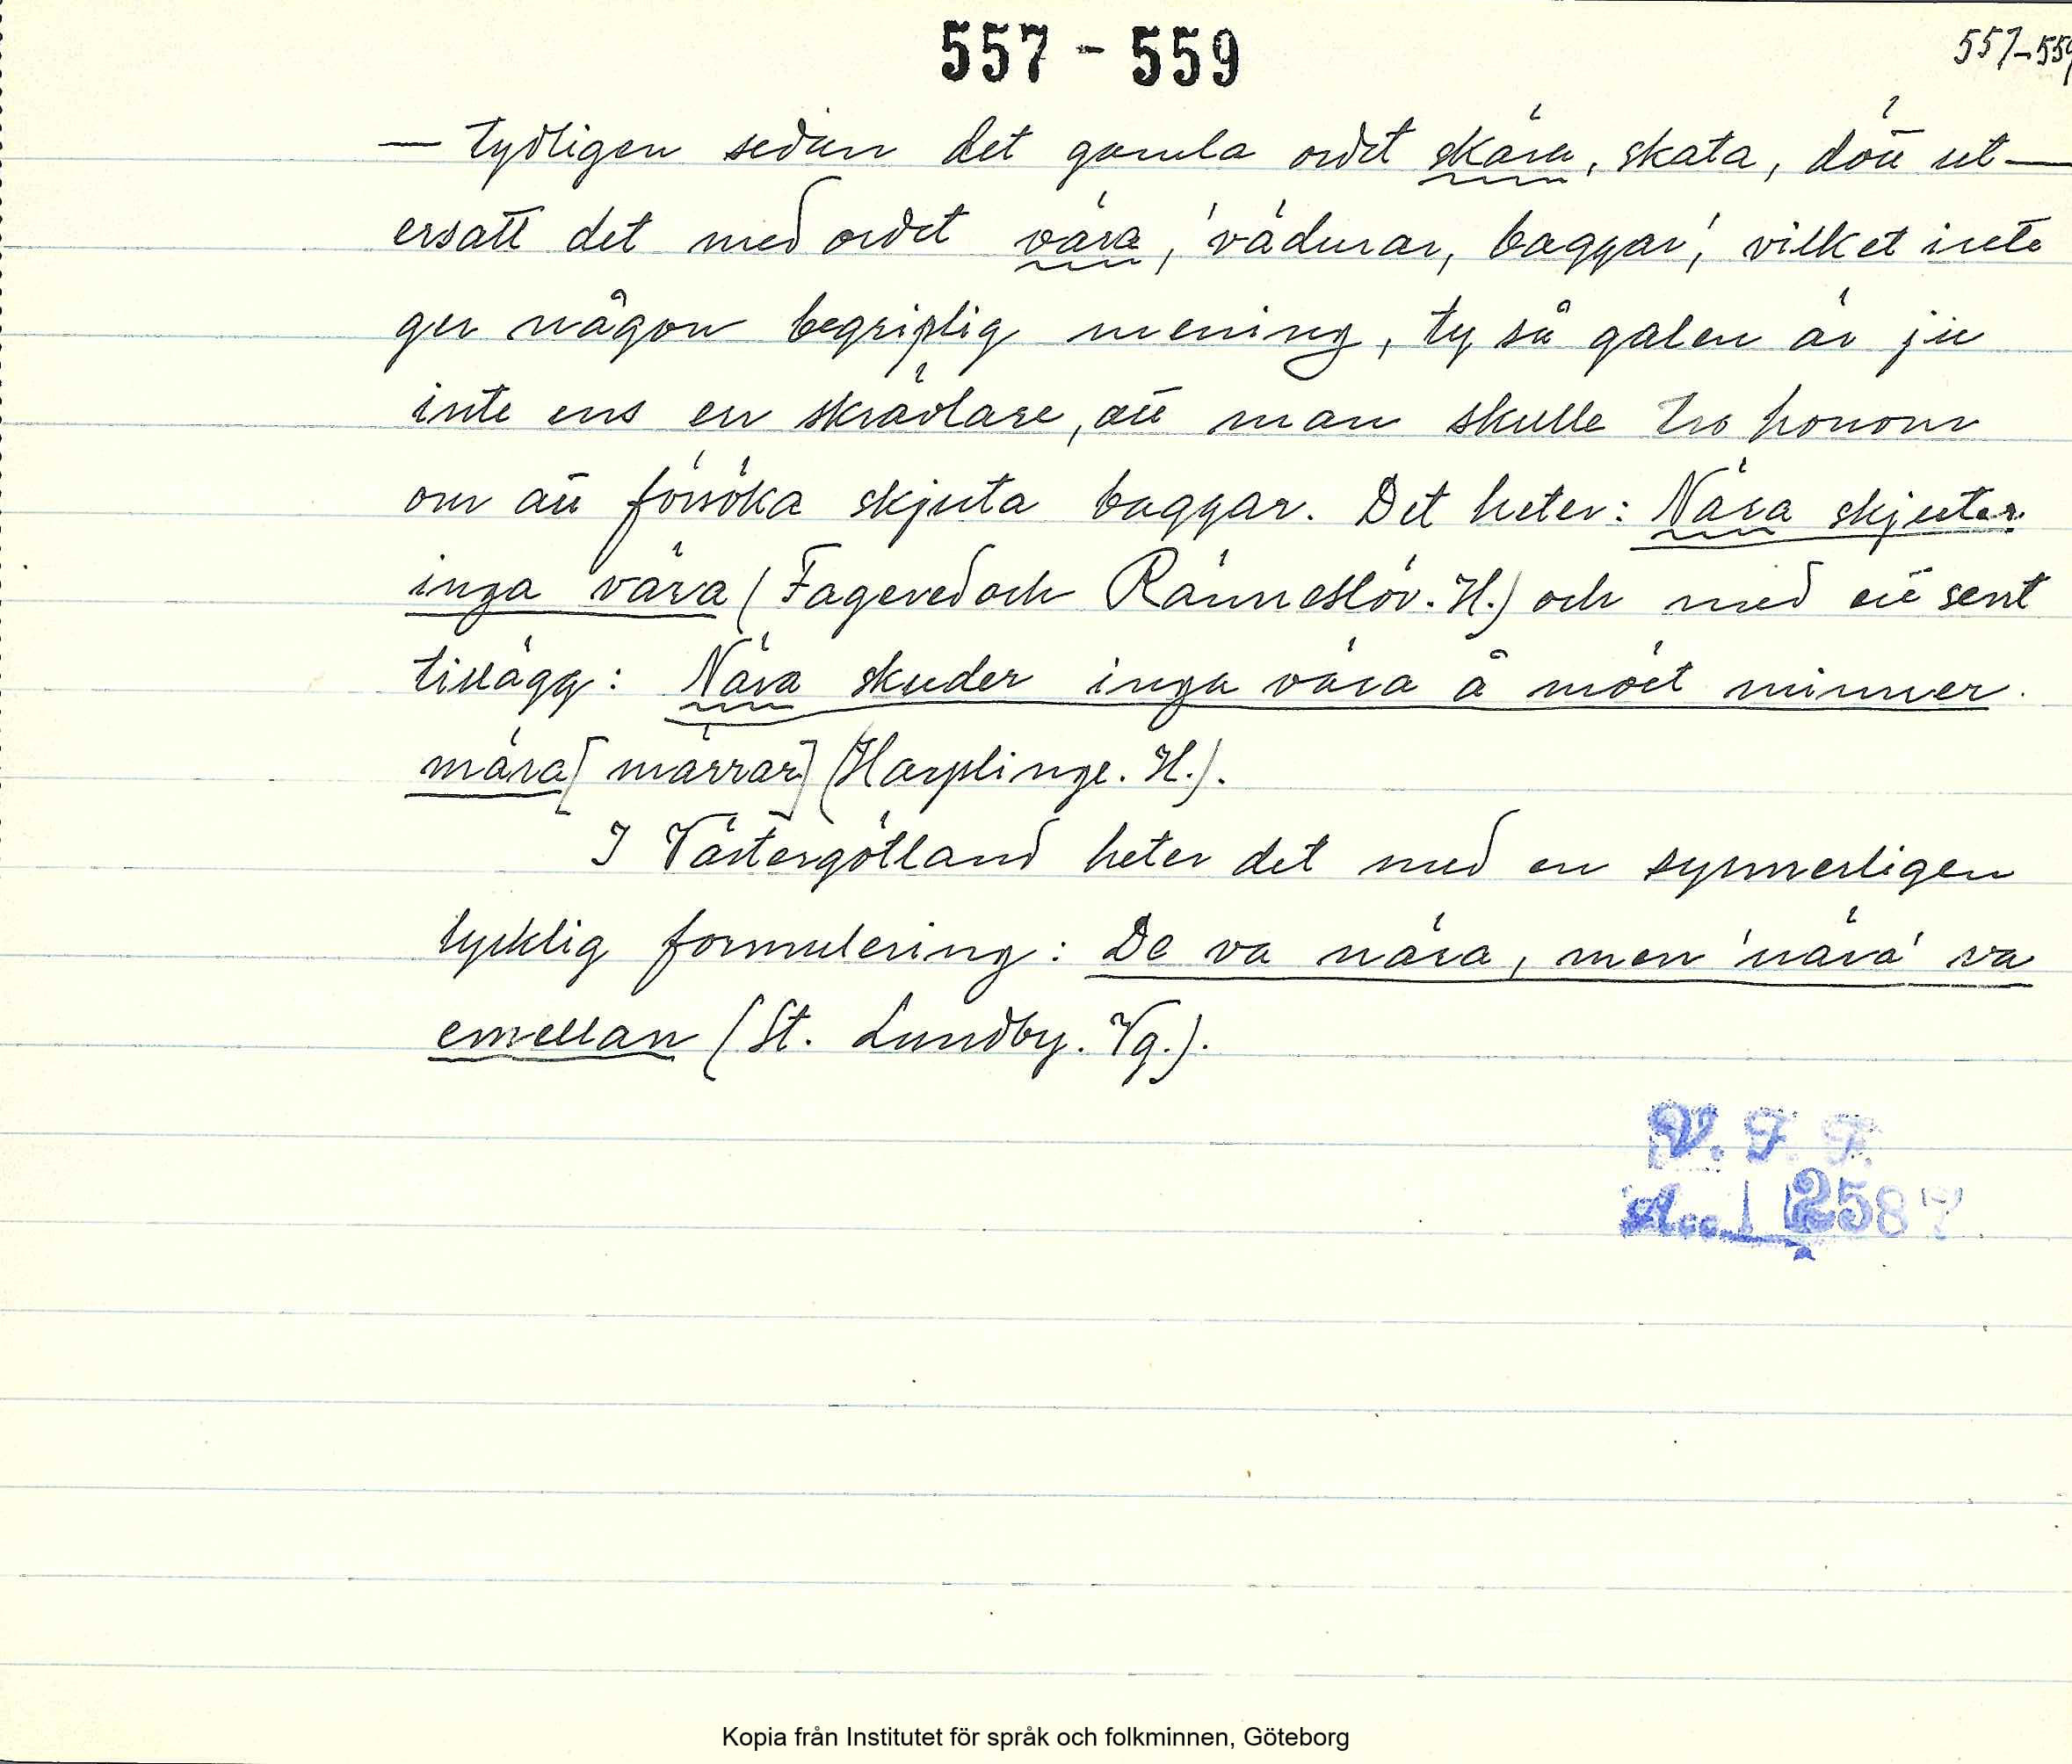 557 - 559
557-559
— tydligen sedan det gamla ordet skära, skata, dött ut —
ersatt det med ordet vära, 'vädurar, baggar', vilket inte
ger någon begriplig mening, ty så galen är ju
inte ens en skrävlare, att man skulle tro honom
om att försöka skjuta baggar. Det heter: Nära skjuter
inga vära (Fagered och Ränneslöv. H.) och med ett sent
tillägg: Nära skuder inga vära å möet minner
mära [märrar] (Harplinge. H.).
I Västergötland heter det med en synnerligen
lycklig formulering: De va nära, men 'nära' va
emellan (St. Lundby. Vg.).
V. F. F.
Acc. 2587
Kopia från Institutet för språk och folkminnen, Göteborg